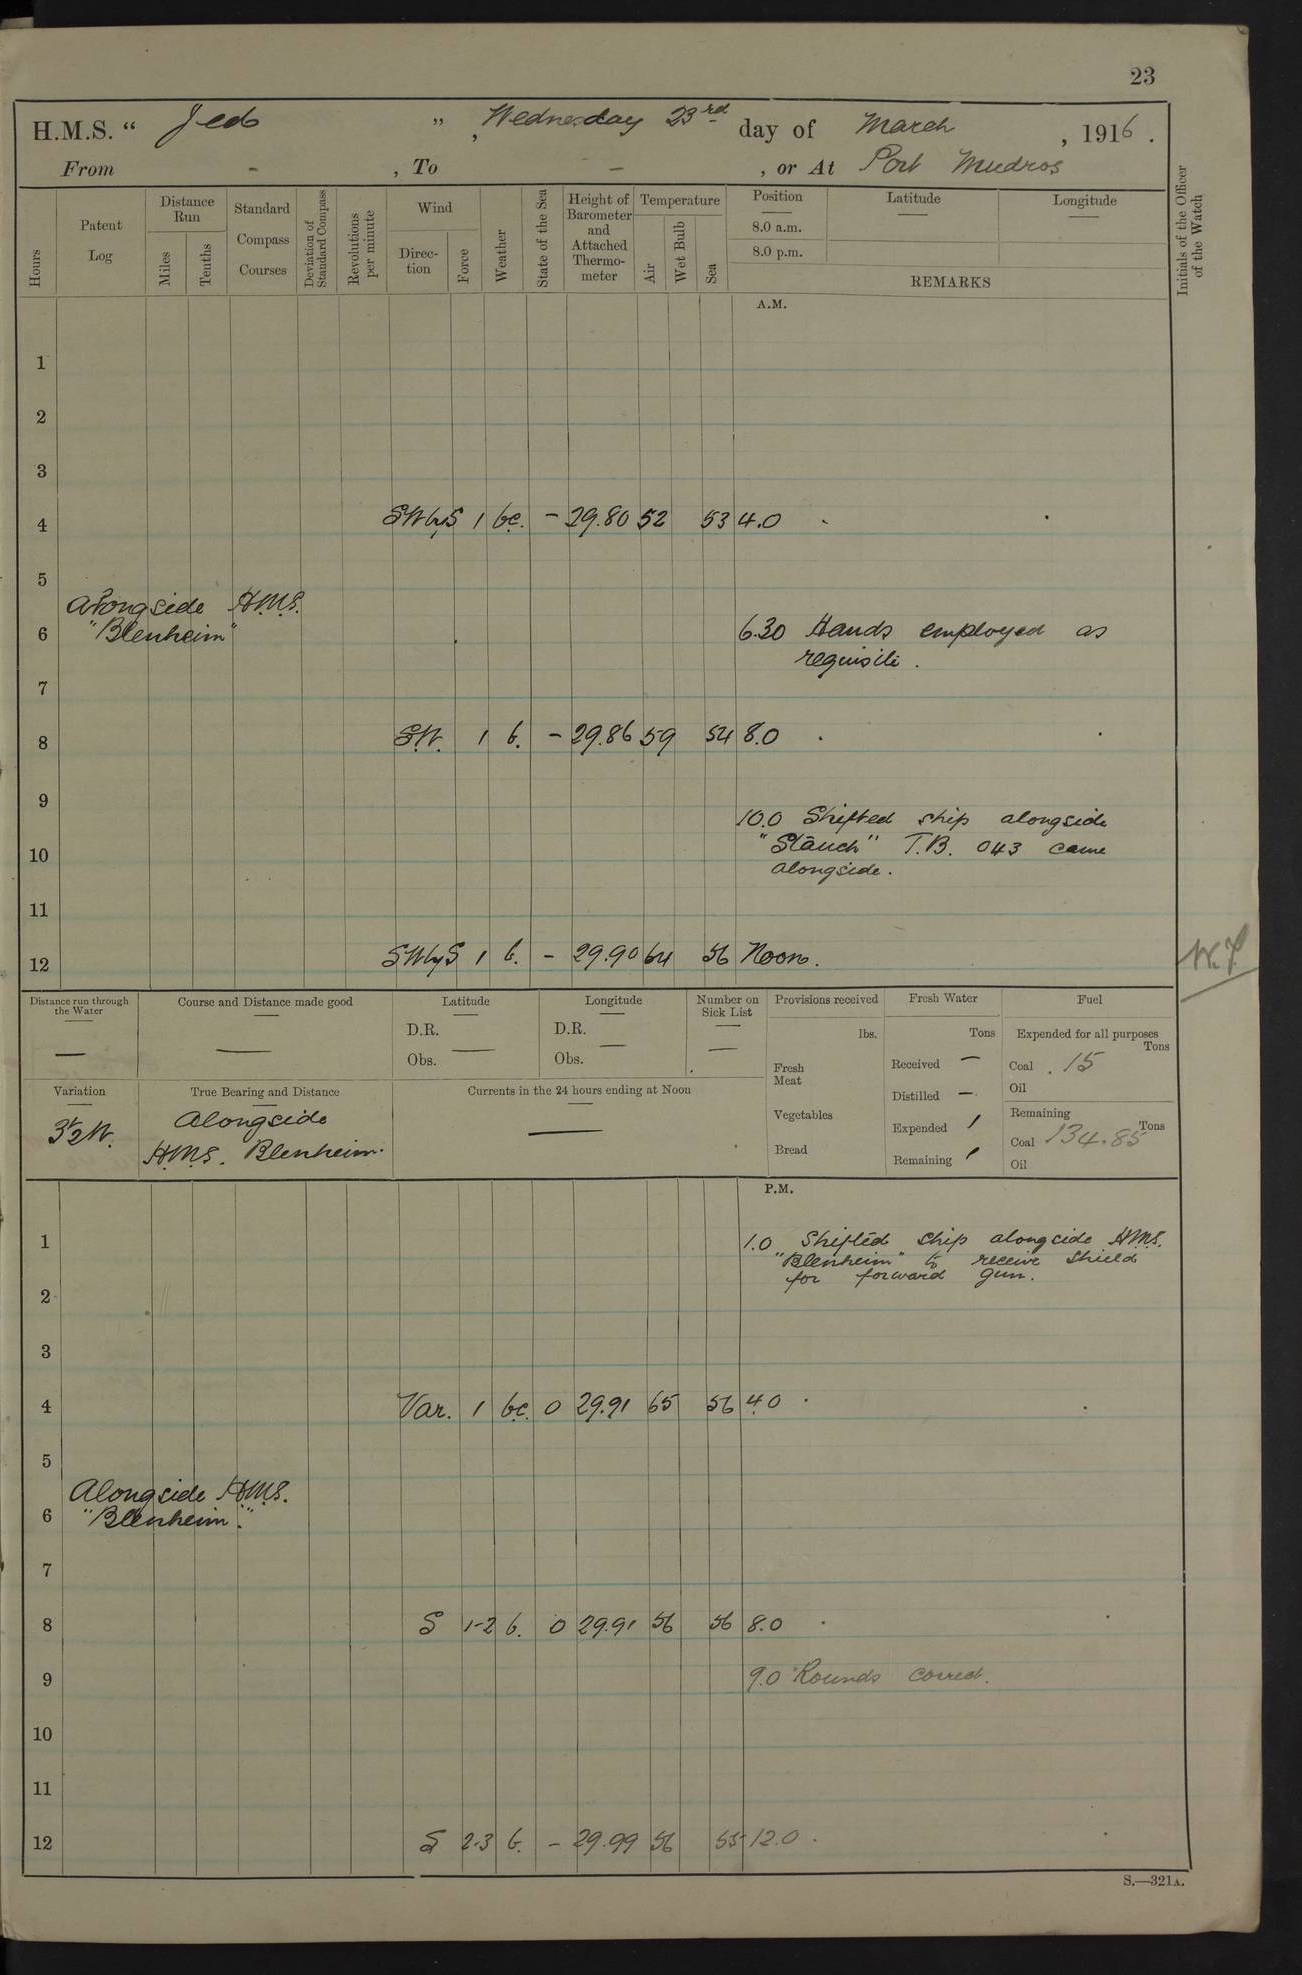 23
H.M.S. " Jed ", Wednesday 23rd day of March, 1916.
From - , To - , or At Port Mudros
Hours
Patent Log
Distance Run
Miles
Tenths
Standard Compass Courses
Deviation of Standard Compass
Revolutions per minute
Wind
Direction
Force
Weather
State of the Sea
Height of Barometer and Attached Thermometer
Temperature
Air
Wet Bulb
Sea
Position
8.0 a.m.
8.0 p.m.
Latitude
Longitude
REMARKS
Initials of the Officer of the Watch
A.M.
1
2
3
4 SWbyS 1 bc. - 29.80 52 53 4.0
5
Alongside H.M.S.
6 "Blenheim" 6.30 Hands employed as
requisite.
7
8 S.W. 1 b. - 29.86 59 54 8.0
9
10.0 Shifted ship alongside
10 "Staunch" T.B. 043 came
alongside.
11
12 SWbyS 1 b. - 29.90 64 56 Noon.
W.F
Distance run through the Water
—
Course and Distance made good
—
Latitude
D.R.
Obs. —
Longitude
D.R. —
Obs.
Number on Sick List
—
Provisions received
lbs.
Fresh Meat
Vegetables
Bread
Fresh Water
Tons
Received —
Distilled —
Expended 1
Remaining 1
Fuel
Expended for all purposes
Tons
Coal . 15
Oil
Remaining
Tons
Coal 134.85
Oil
Variation
3½ W.
True Bearing and Distance
Alongside
H.M.S. Blenheim.
Currents in the 24 hours ending at Noon
—
P.M.
1 1.0 Shifted ship alongside H.M.S.
"Blenheim" to receive shield
for forward gun.
2
3
4 Var. 1 bc. 0 29.91 65 56 4.0
5
Alongside H.M.S.
6 "Blenheim."
7
8 S 1-2 b. 0 29.91 56 56 8.0
9 9.0 Rounds correct.
10
11
12 S 2-3 b. - 29.99 56 55 12.0
S.—321A.